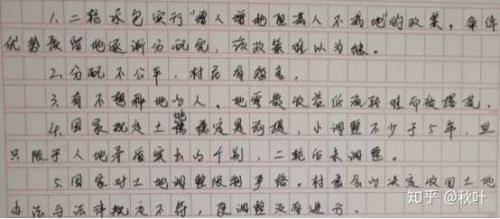 1.二轮承包实行“增人增地但减人不减地”的政策，条件
优势最留地逐渐分配完，该政策难以为继。
2.分配不公平，村庄有怨言。
3.有不想种地的人。地零散收益低流转难而被撂荒。
4.国家规定土地稳定是前提，小调整不少于5年，且
只限于人地矛盾突出的个别，二轮后未调整。
5.国家对土地调整限制严格。村委会的决定收回土地
办法与法律规定不符，使调整没有进行。
知乎 @秋叶